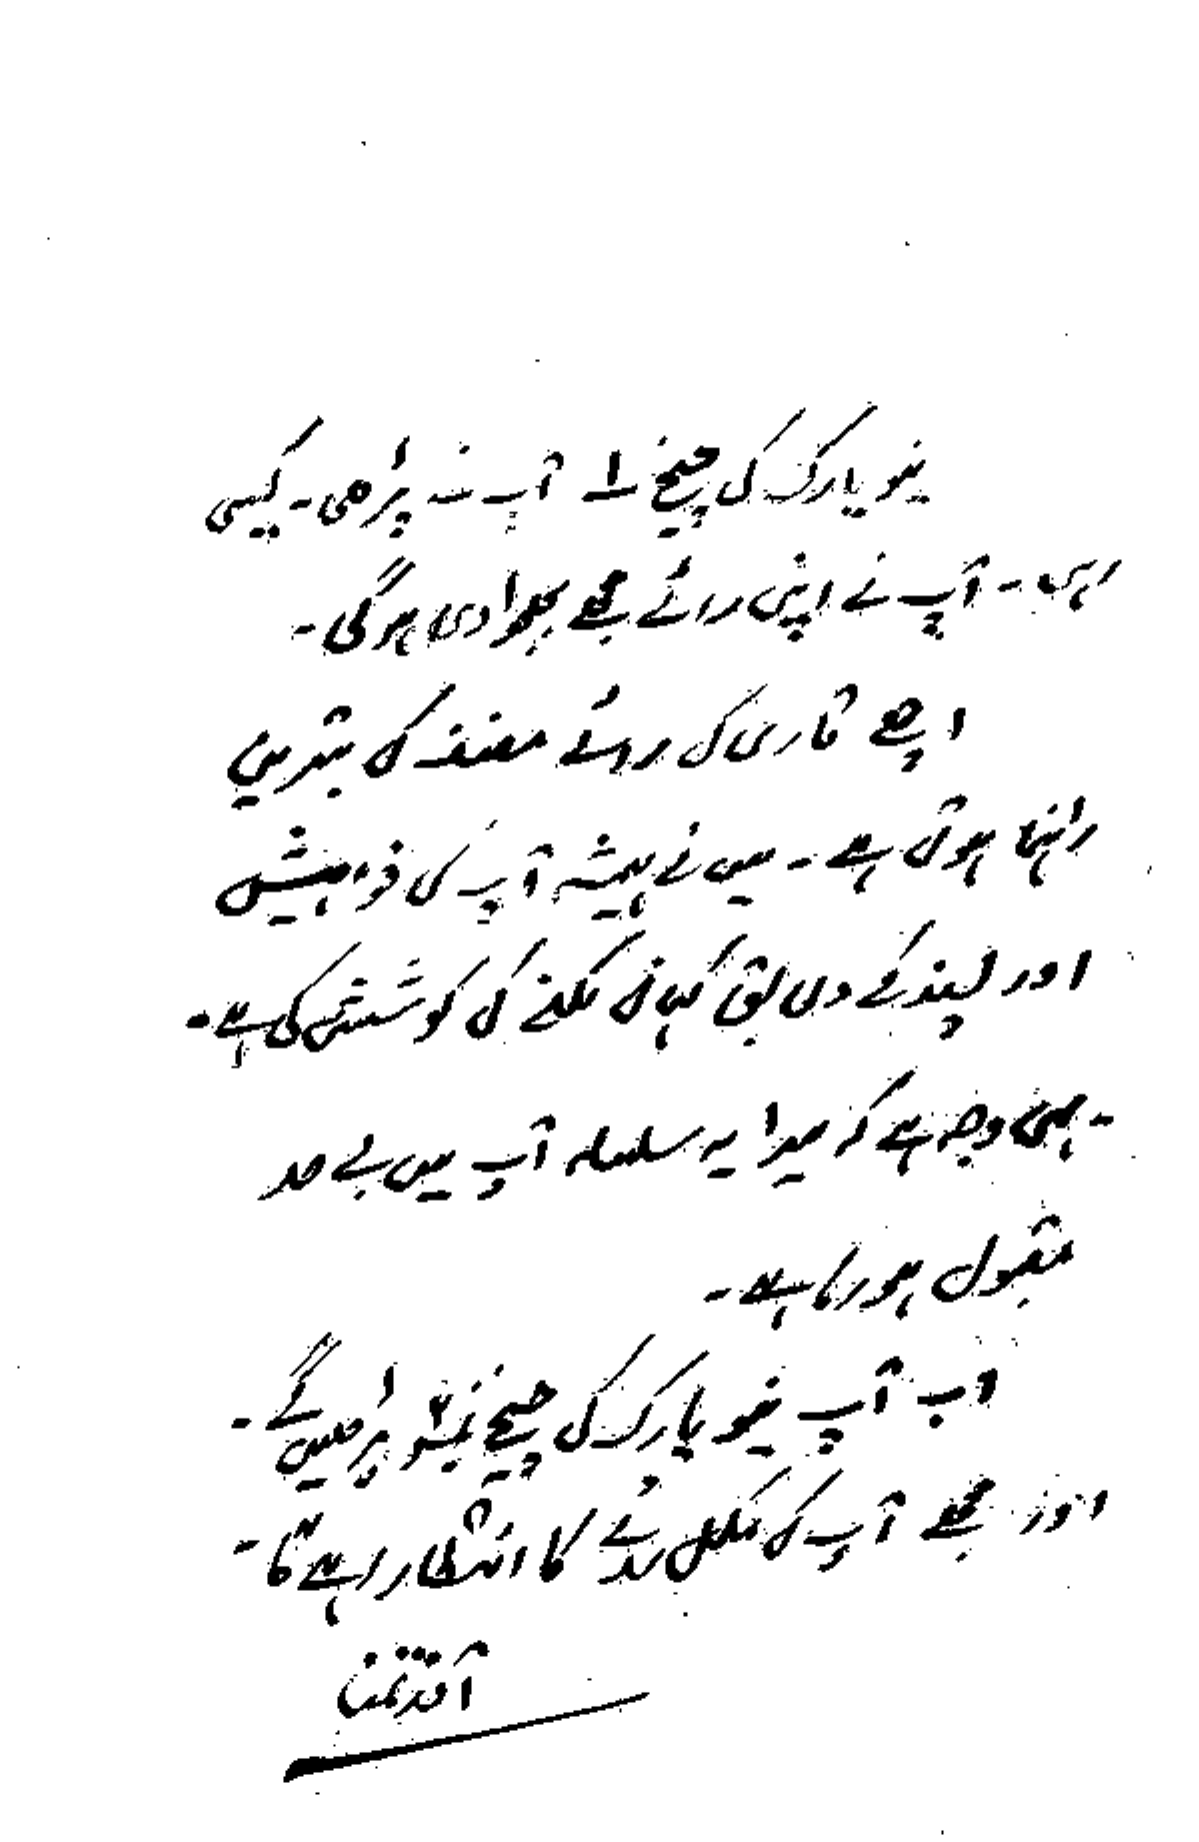 نیو یارک کی چیخ نمبر ۱ آپ نے پڑھی۔ کیسی
رہی۔ آپ نے اپنی رائے مجھے بھجوا دی ہوگی۔
اچھے قاری کی رائے مصنف کی بہترین
راہنما ہوتی ہے۔ میں نے ہمیشہ آپ کی خواہش
اور پسند کے مطابق کہانی لکھنے کی کوشش کی ہے۔
یہی وجہ ہے کہ میرا یہ سلسلہ آپ میں بے حد
مقبول ہو رہا ہے۔
اب آپ نیو یارک کی چیخ نمبر ۲ پڑھیں گے۔
اور مجھے آپ کی مکمل رائے کا انتظار رہے گا۔